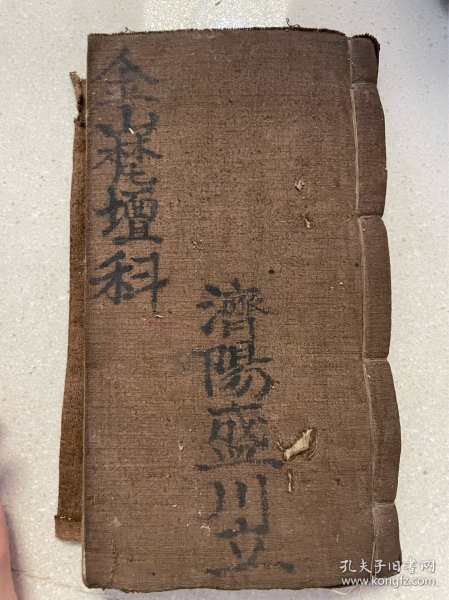 金山壇科
濟陽盛川立
孔夫子旧书网
www.kongfz.com